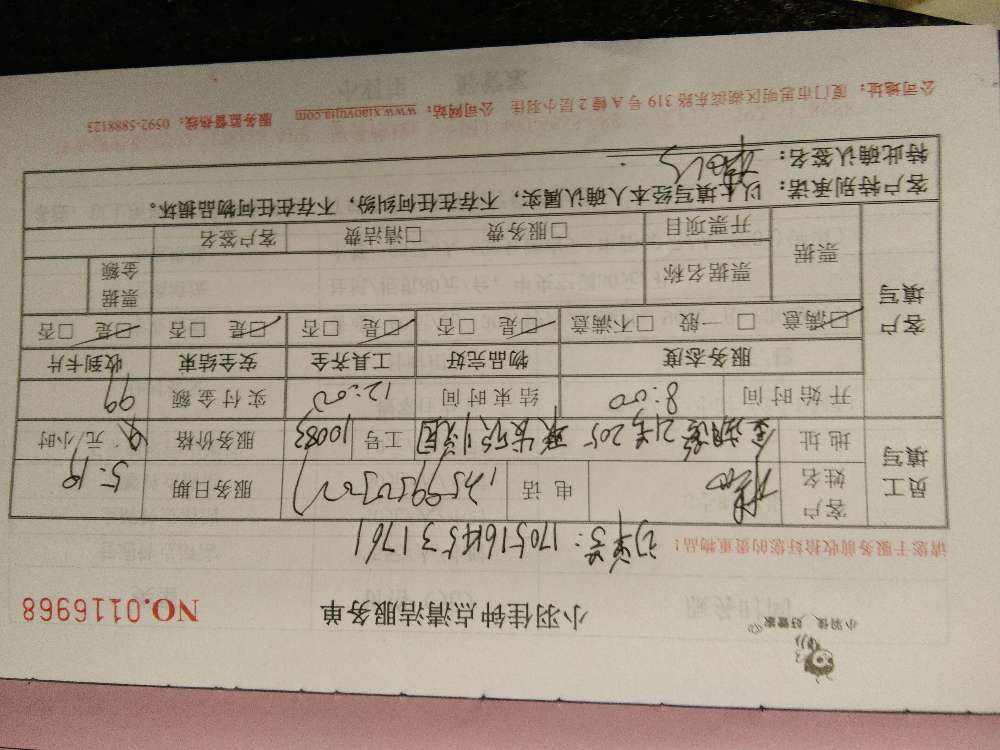 小羽佳 好管家
小羽佳钟点清洁服务单 NO.0116968
请您于服务前收拾好您的贵重物品! 订单号: 17051645531761
员工填写 客户姓名 电话 服务日期 5.19
地址 金湖路21号205 工号 10083 服务价格 元/小时
客户填写 开始时间 8:00 结束时间 12:00 实付金额 99
服务态度 物品完好 工具齐全 安全结束 收到卡片
□满意 □一般 □不满意 □是 □否 □是 □否 □是 □否 □是 □否
票据 票据名称 票据金额
开票项目 □服务费 □清洁费 客户签名
客户特别承诺: 以上填写经本人确认属实, 不存在任何纠纷, 不存在任何物品损坏。
特此确认签名:
公司地址: 厦门市思明区湖滨东路 319 号 A 幢 2 层小羽佳 公司网站: www.xiaoyujia.com 服务监督热线: 0592-5888123